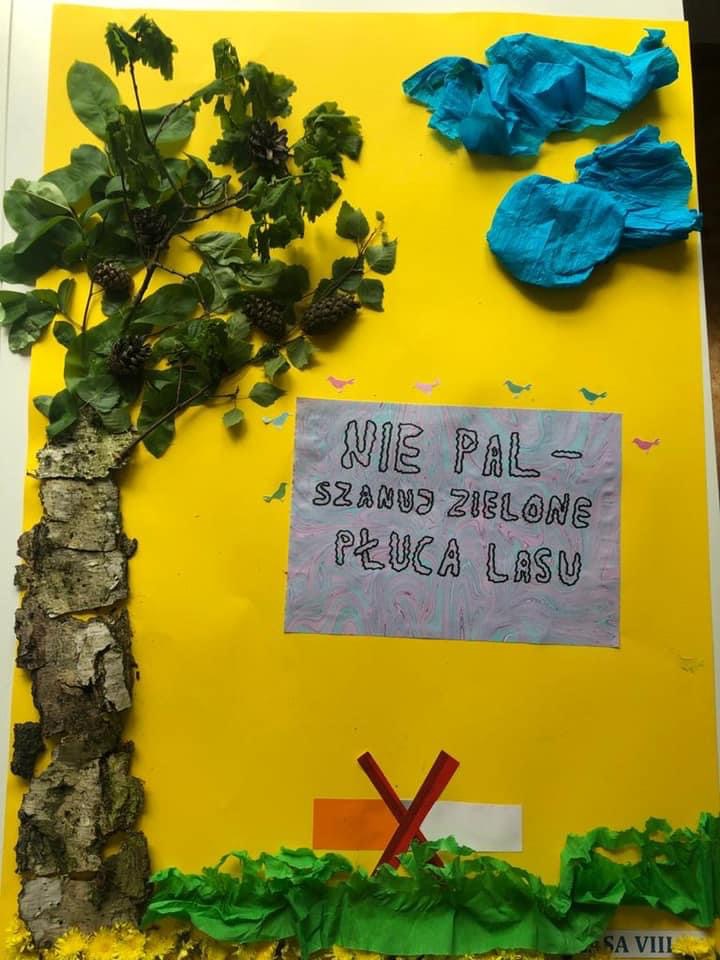 NIE PAL -
SZANUJ ZIELONE
PŁUCA LASU
VIII